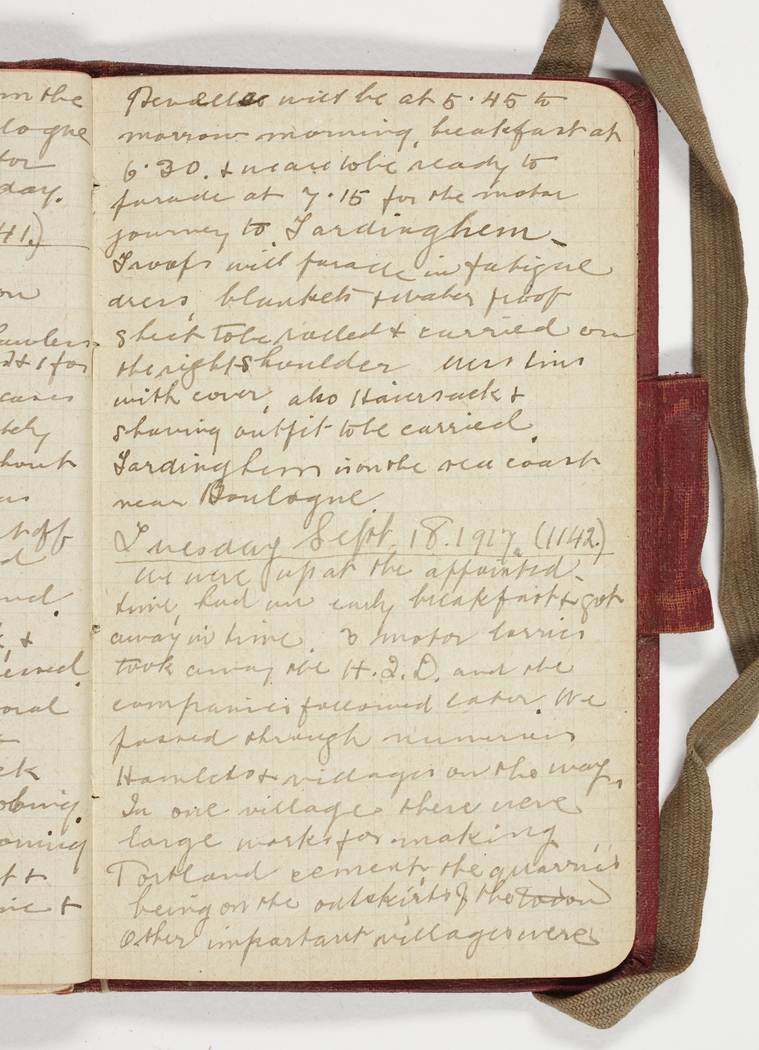 Reveillee will be at 5.45 to
morrow morning, breakfast at
6.30. & we are to be ready to
parade at 7.15 for the motor
journey to Tardinghem
Troops will parade in fatigue
dress, blankets & water proof
sheet to be rolled & carried on
the right shoulder mess tins
with cover, also Haversack &
shaving outfit to be carried
Tardinghem is on the sea coast
near Boulogne.
Tuesday Sept. 18. 1917. (1142.)
We were up at the appointed
time, had an early breakfast & got
away in time. 3 motor lorries
took away the H.2.D. and the
companies followed later. We
passed through numerous
Hamlets & villages on the way.
In one village there were
large works for making
Portland cement, the quarries
being on the outskirts of the town
Other important villages were
m the
logne
for
day.
41.)
on
awless
& 1 for
cases
tely
hout
as
off
d
&
oral
ck
oming
&
&